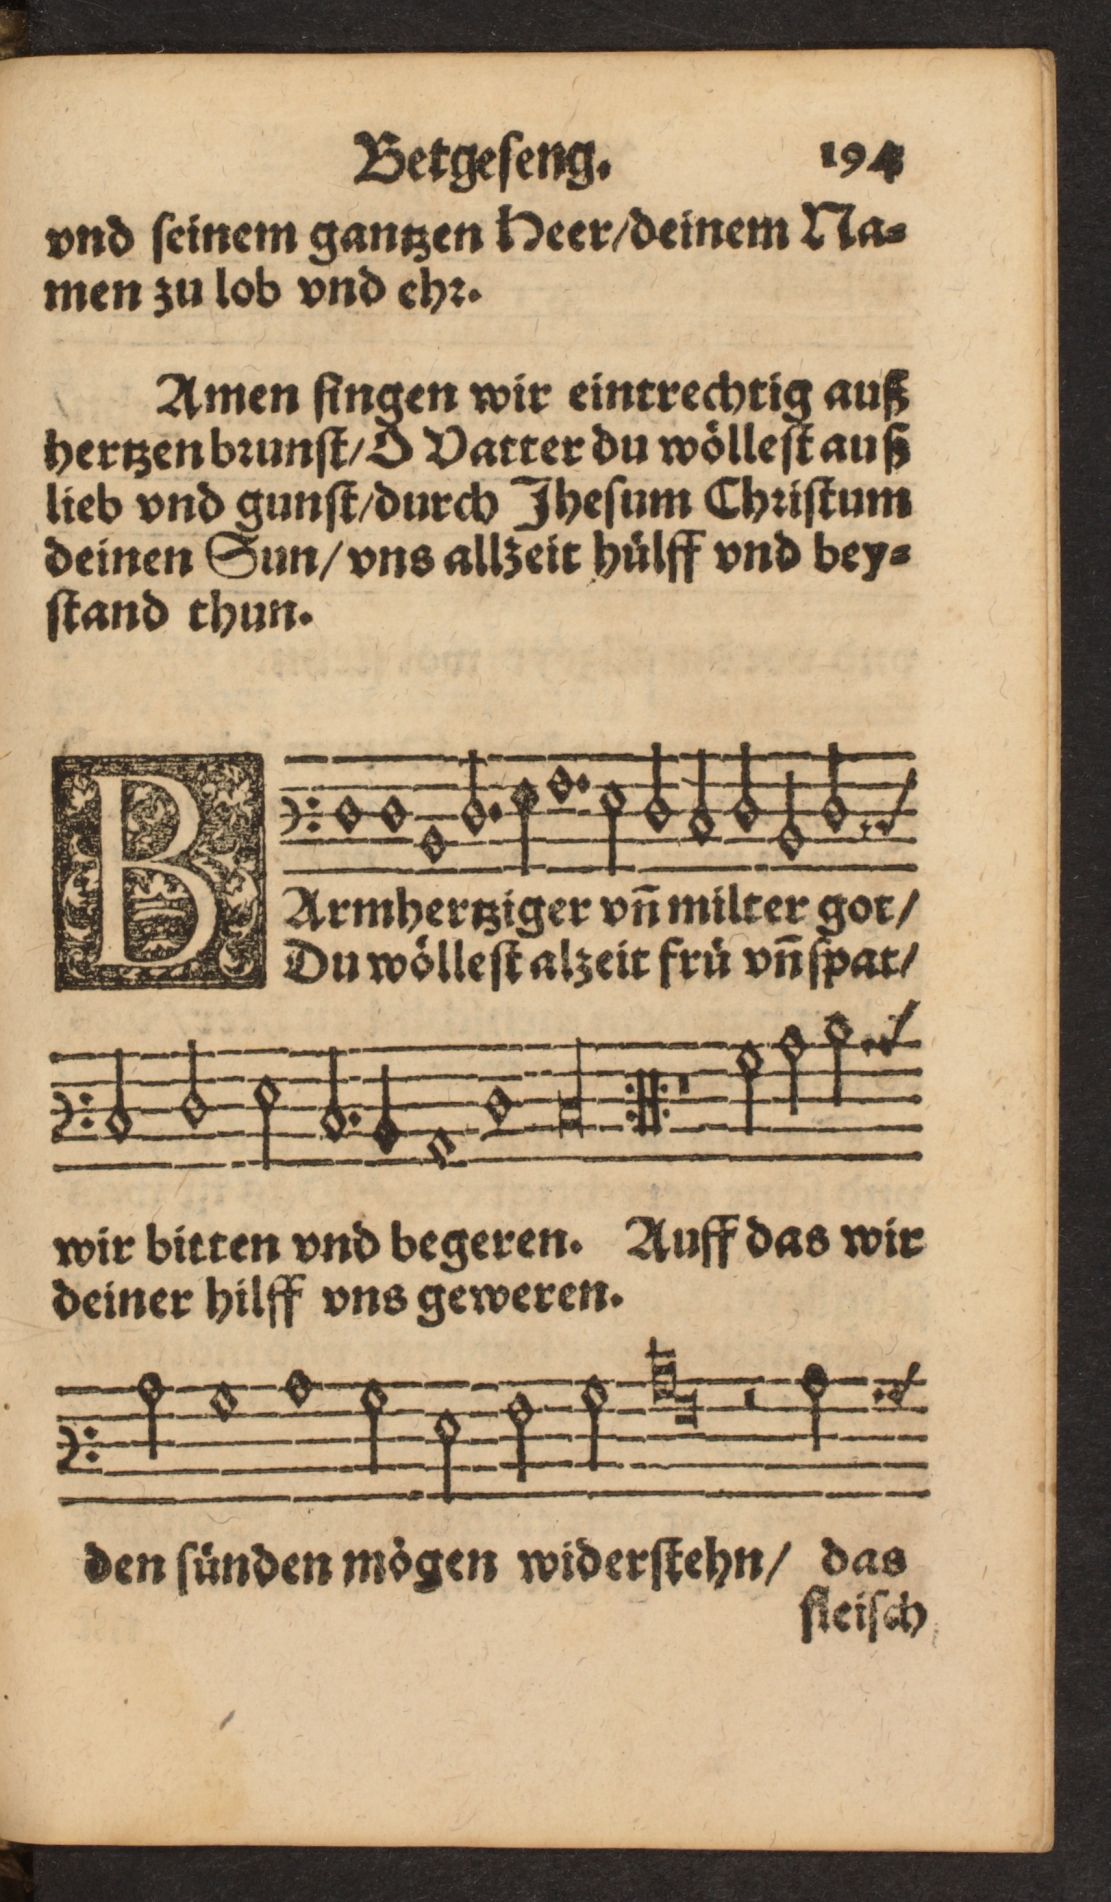 Betgeseng. 194
vnd seinem gantzen Heer/deinem Na=
men zu lob vnd ehr.
Amen singen wir eintrechtig auß
hertzen brunst/O Vatter du wöllest auß
lieb vnd gunst/durch Jhesum Christum
deinen Sun/vns allzeit hülff vnd bey=
stand thun.
BArmhertziger vn̄ milter got/
Du wöllest alzeit frü vn̄ spat/
wir bitten vnd begeren. Auff das wir
deiner hilff vns geweren.
den sünden mögen widerstehn/ das
fleisch